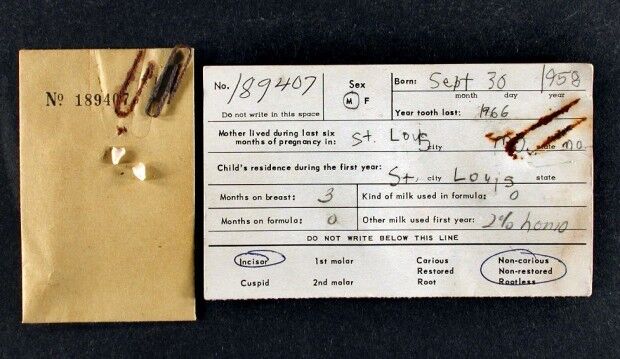 Nº 189407
No. 189407
Do not write in this space
Sex
M F
Born: Sept 30 1958
month day year
Year tooth lost: 1966
Mother lived during last six
months of pregnancy in: St. Louis city Mo. state mo.
Child's residence during the first year:
St. city Louis state
Months on breast: 3
Kind of milk used in formula: 0
Months on formula: 0
Other milk used first year: 2% homo
DO NOT WRITE BELOW THIS LINE
Incisor 1st molar Carious Non-carious
Restored Non-restored
Cuspid 2nd molar Root Rootless